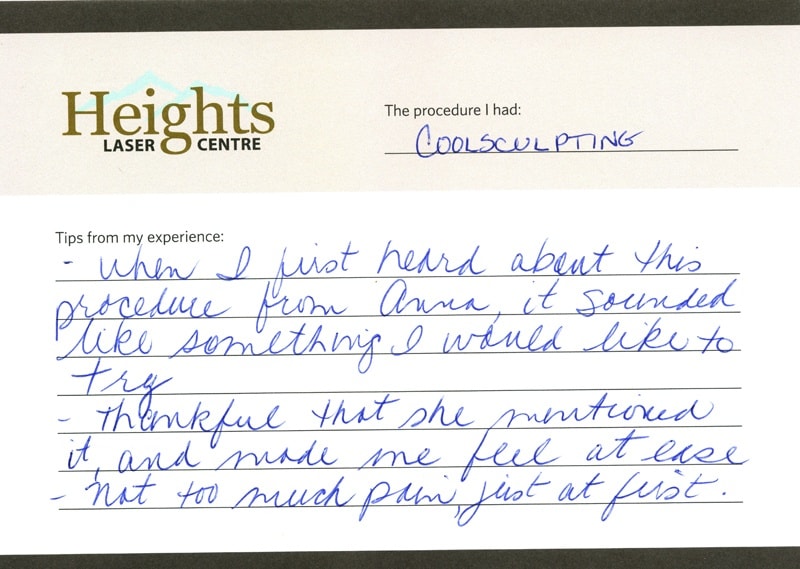 Heights
LASER CENTRE
The procedure I had:
COOLSCULPTING
Tips from my experience:
- When I first heard about this
procedure from Anna, it sounded
like something I would like to
try
- Thankful that she mentioned
it, and made me feel at ease
- Not too much pain, just at first.